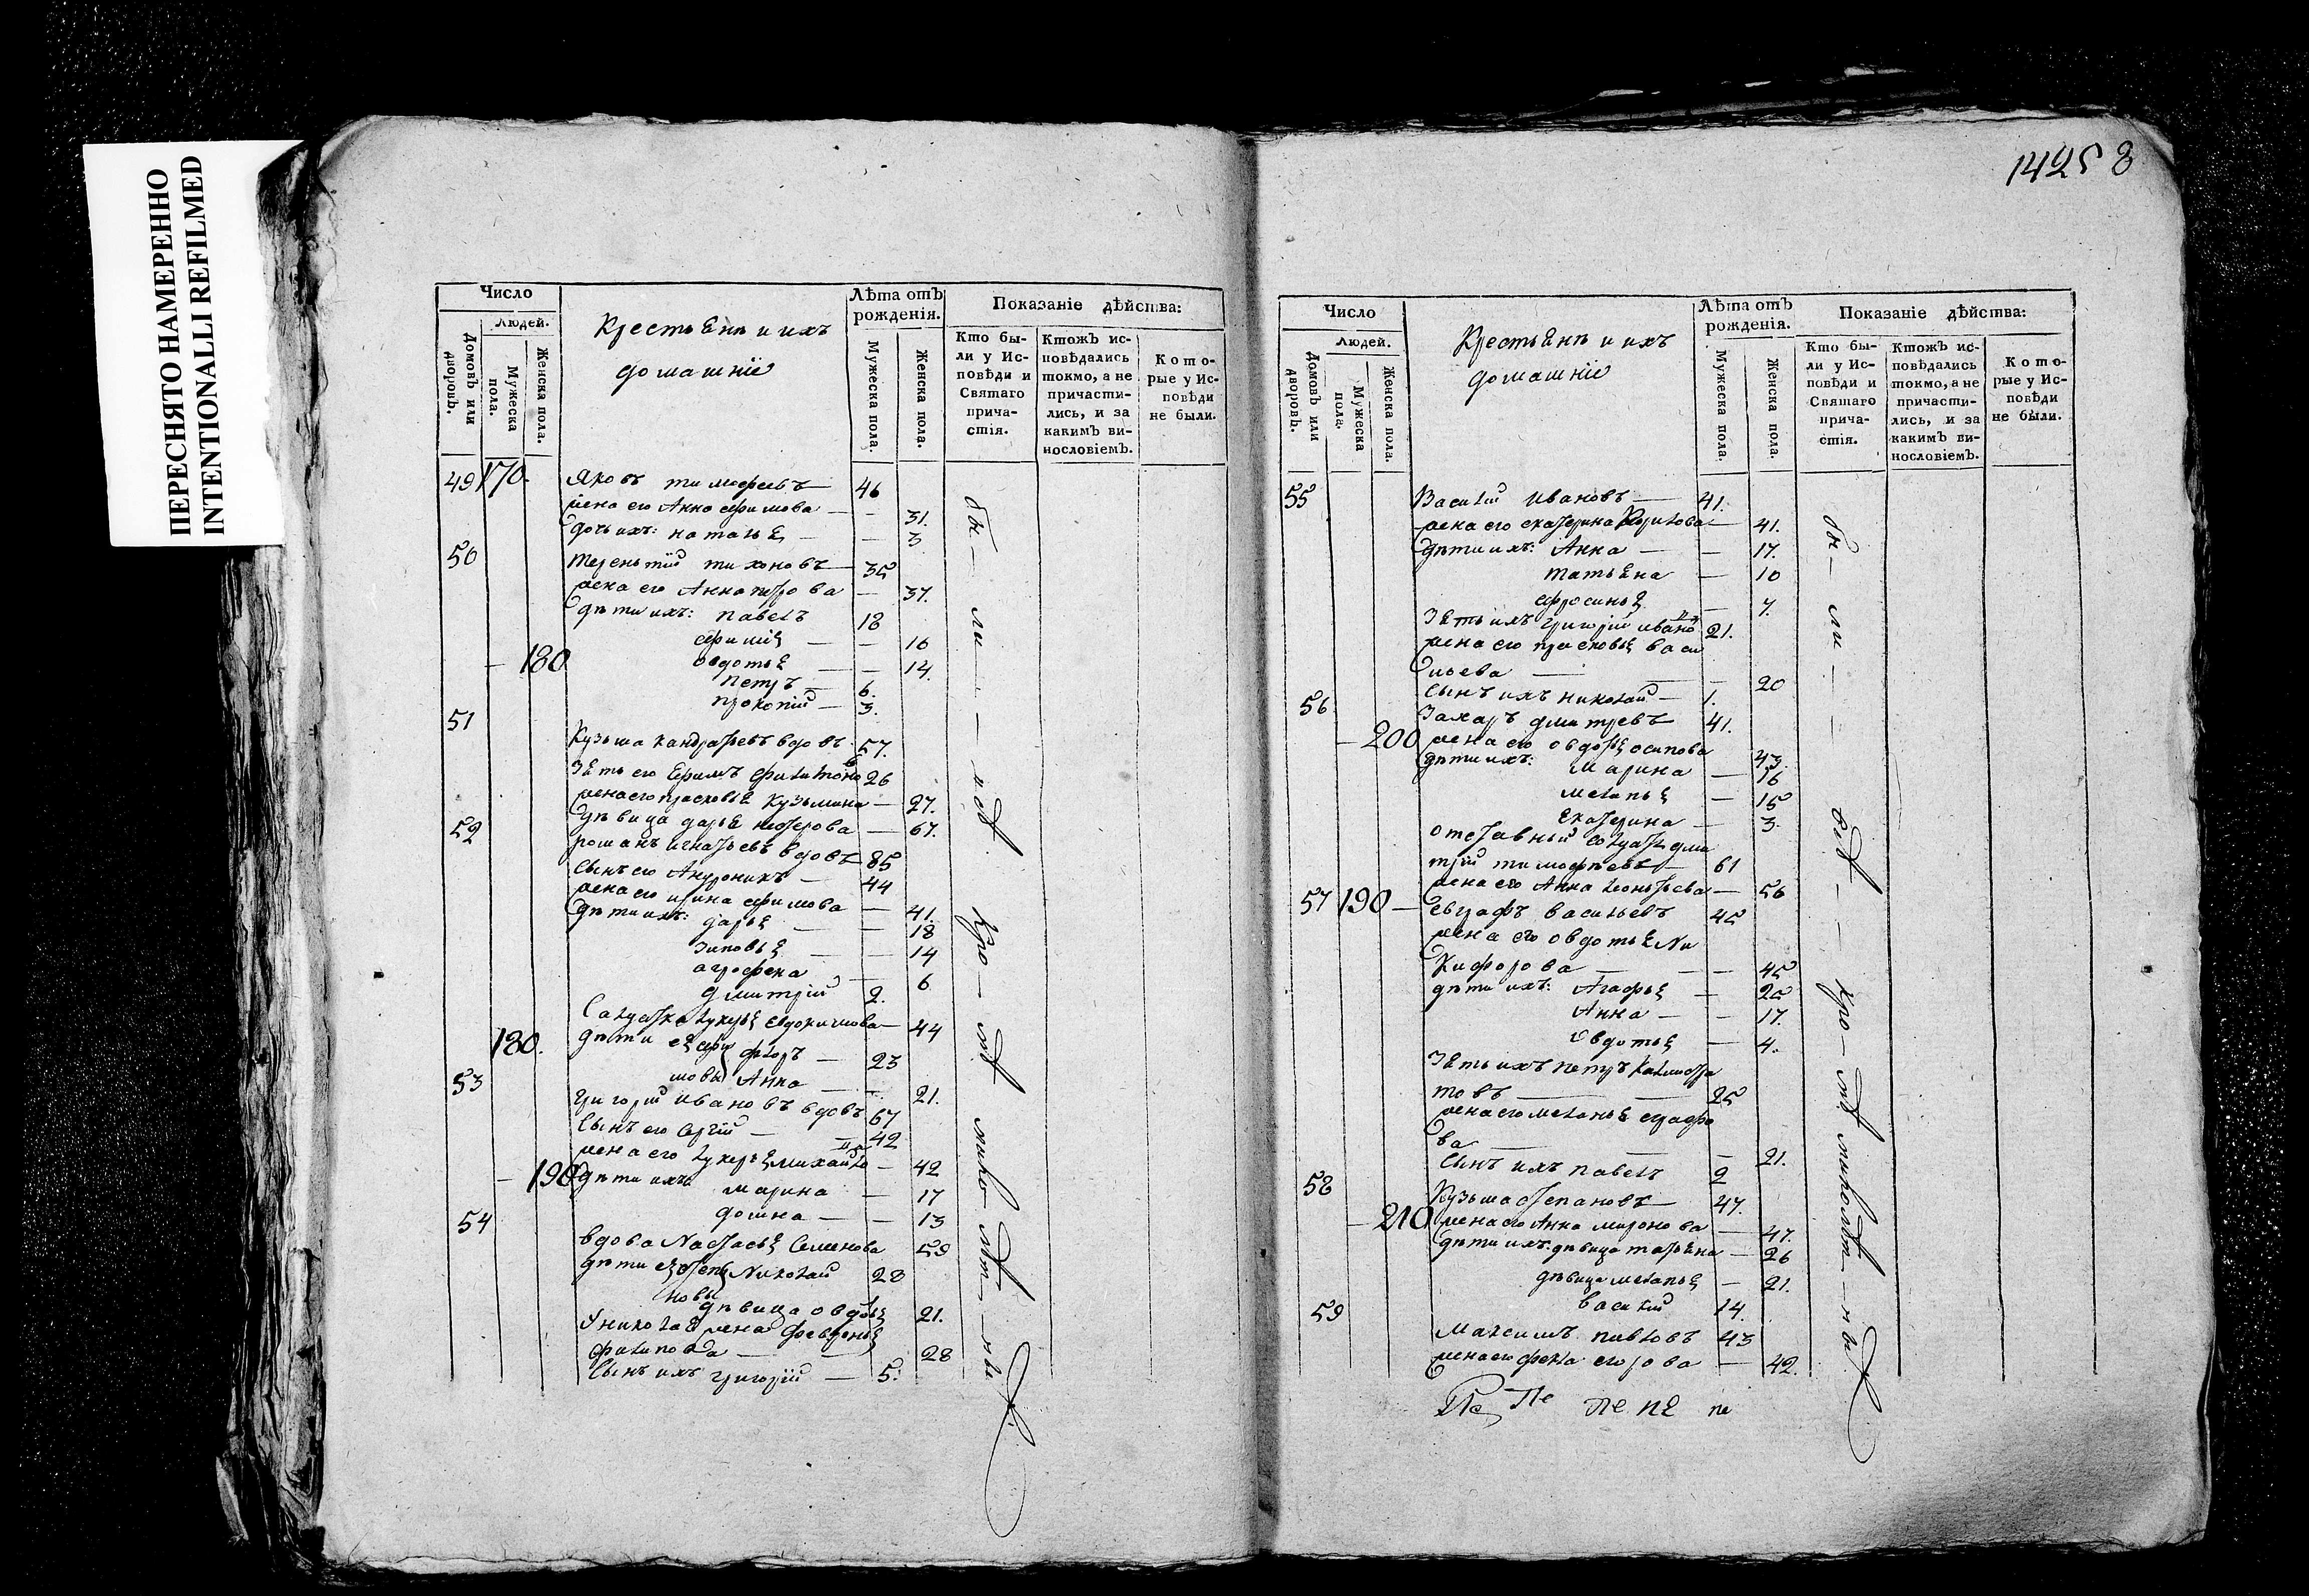 ПЕРЕСНЯТО НАМЕРЕННО
INTENTIONALLI REFILMED
14258
Число
Людей.
Домовъ или дворовъ.
Мужеска пола.
Женска пола.
Крестьянъ и ихъ
домашнiе
Лѣта отъ рожденiя.
Мужеска пола.
Женска пола.
Показанiе дѣйства:
Кто были у Исповѣди и Святаго причастiя.
Ктожъ исповѣдались токмо, а не причастились, и за какимъ винословiемъ.
Которые у Исповѣди не были.
49 170. Яковъ тимофеевъ — 46
жена его Анна ефимова — — 31.
дочь ихъ: наталья — — 3
50 терентiй тихоновъ — 35
жена его Анна петрова — 37.
дѣти ихъ: павелъ 18
ефимiя — — 16
— 180 овдотья — — 14.
петръ — 6.
прокопiй — 3.
51 Кузьма кандратьевъ вдовъ 57.
зять его Ефимъ филитоно 26
жена его прасковья кузьмина — 27.
дѣвица дарья нефедова — 67.
52 романъ игнатьевъ вдовъ 85
сынъ его Андроникъ — 44
жена его ирина ефимова — 41.
дѣти ихъ: дарья — — 18
зиновья — — 14
агрофена — 6
дмитрiй 2.
Салдатка лукерья евдокимова — 44
180. дѣти ея ефи флоръ — 23
мовы Анна — — 21.
53 григорiй ивановъ вдовъ 67
сынъ его сергiй — 42
жена его лукерья михайло — 42
— 190 дѣти ихъ марина — 17
домна — — 13
54 вдова Настасья семенова 59
дѣти ея степа Николай 28
новы
дѣвица овдотья 21.
У николая жена февронья
филипова — — 28
сынъ ихъ григорiй — 5.
бы — ли — — под
Число
Людей.
Домовъ или дворовъ.
Мужеска пола.
Женска пола.
Крестьянъ и ихъ
домашнiе
Лѣта отъ рожденiя.
Мужеска пола.
Женска пола.
Показанiе дѣйства:
Кто были у Исповѣди и Святаго причастiя.
Ктожъ исповѣдались токмо, а не причастились, и за какимъ винословiемъ.
Которые у Исповѣди не были.
55 Василiй ивановъ — 41.
жена его екатерина — 41.
дѣти ихъ: Анна — — 17.
татьяна — 10
ефросинья — 7.
зять ихъ григорiй ивано 21.
жена его прасковья васи
льева — — 20
сынъ ихъ николай — 1.
56 захаръ дмитревъ 41.
— 200 жена его овдотья осипова 43.
дѣти ихъ: марина — 16
меланья — 15
екатерина — 3.
отставный солдатъ дми
трiй тимофѣевъ — 61
жена его Анна леонтьева — 56
57 190 — евграфъ васильевъ 45
жена его овдотья Ни
кифорова — — — 45
дѣти ихъ: Агафья — 25
Анна — — 17.
овдотья — 4.
зять ихъ петръ
товъ — — 25
жена его меланья еграфо
ва — — 21.
сынъ ихъ павелъ 2
58 Кузьма степановъ — 47.
— 210 жена его Анна миронова — 47.
дѣти ихъ: дѣвица татьяна — 26
дѣвица меланья — 21.
василiй 14.
59 Максимъ павловъ 43
жена его фекла егорова — 42.
бы — ли —
пе пе пе пе